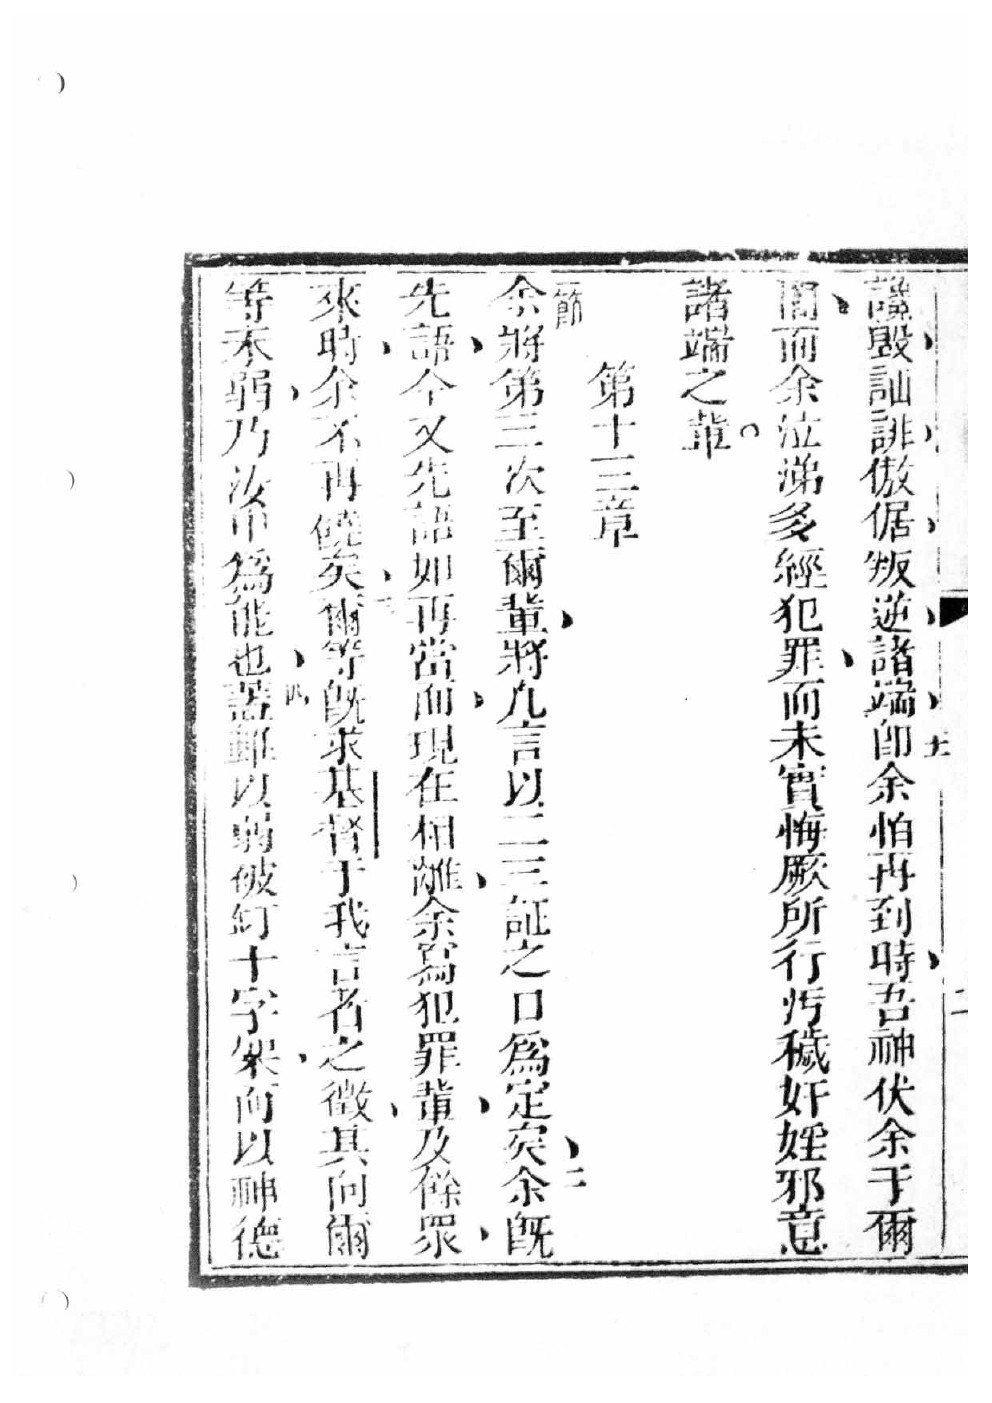 讒毀訕誹傲倨叛逆諸端卽余怕再到時吾神伏余于爾
間而余泣涕多經犯罪而未實悔厥所行污穢奸婬邪意
諸端之輩。
第十三章
一節余將第三次至爾輩將凡言以二三証之口爲定矣二余旣
先語今又先語如再當面現在相離余寫犯罪輩及餘眾
來時余不再饒矣三爾等旣求基督于我言者之徵其向爾
等未弱乃汝中爲能也四蓋雖以弱被釘十字架而以神德